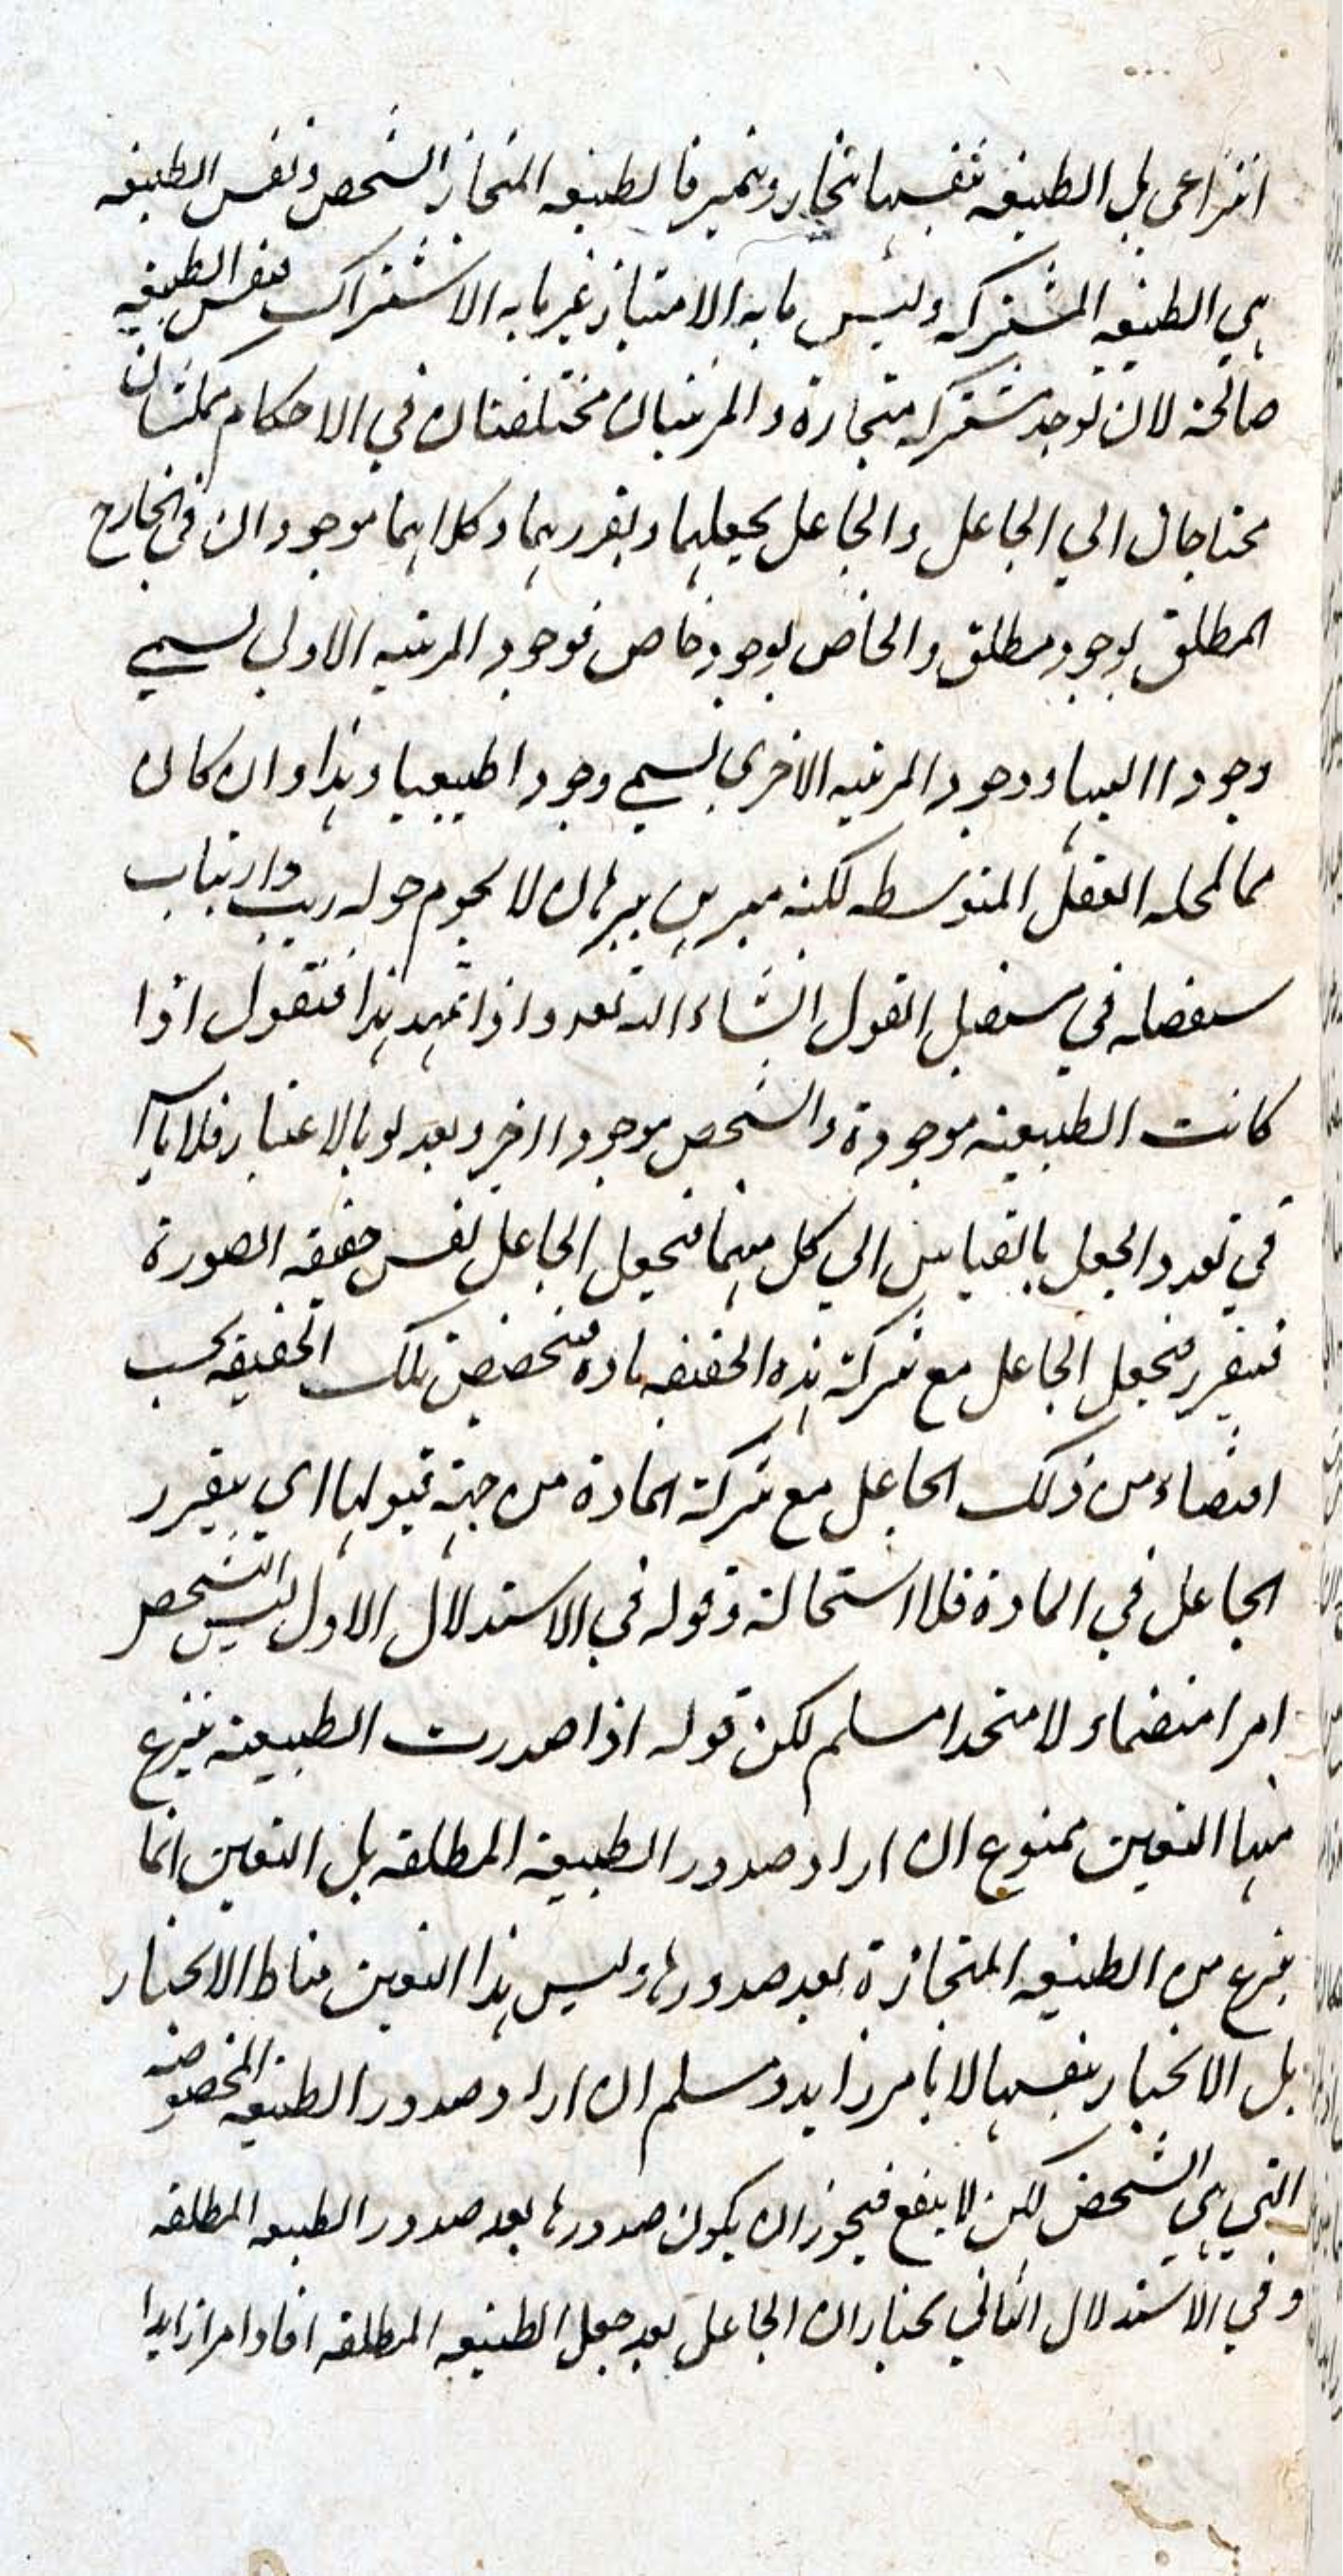 انتزاعي بل الطبيعه بنفسها تنحاز وتتميز فالطبيعه المنحاز الشخص ونفس الطبيعه
هي الطبيعه المشتركه وليس ما به الامتياز غير ما به الاشتراك فنفس الطبيعه
صالحة لان توجد مشتركه متحازة والمرتبتان مختلفتان في الاحكام ممكنتان
محتاجان الي الجاعل والجاعل يجعلهما ويقررهما وكلاهما موجودان في الخارج
المطلق بوجود مطلق والخاص بوجود خاص فوجود المرتبه الاولي يسمي
وجودا الهيا ووجود المرتبه الاخري يسمي وجودا طبيعيا وهذا وان كان
مما العقل المتوسطه لكنه مبرهن ببرهان لا يحوم حوله ريب وارتياب
سنفصله في مستقبل القول انشاء الله تعه واذا تمهد هذا فنقول اذا
كانت الطبيعة موجودة والشخص موجودا اخر وبعد لو بالاعتبار فلا باس
في تعدد الجعل بالقياس الي كل منهما فيجعل الجاعل نفس حقيقه الصورة
فيتقرر فيجعل الجاعل مع شركة هذه الحقيقه مادة فيتخصص تلك الحقيقه بحسب
اقتضاء من ذلك الجاعل مع شركة المادة من جهة قبولها اي يتقرر
الجاعل في المادة فلا استحالة وقوله في الاستدلال الاول ليس الشخص
امرا منضما ولا متحدا مسلم لكن قوله اذا صدرت الطبيعة ينزع
منها التعين ممنوع ان اراد صدور الطبيعة المطلقه بل التعين انما
ينزع من الطبيعه المتحازة بعد صدورها وليس هذا التعين مناط الانحياز
بل الانحياز بنفسها لا بامر زايد ومسلم ان اراد صدور الطبيعه المخصوصه
التي هي الشخص لكن لا ينفع فيجوز ان يكون صدورها بعد صدور الطبيعه المطلقه
وفي الاستدلال الثاني نختار ان الجاعل بعد جعل الطبيعه المطلقه افاد امرا زايدا